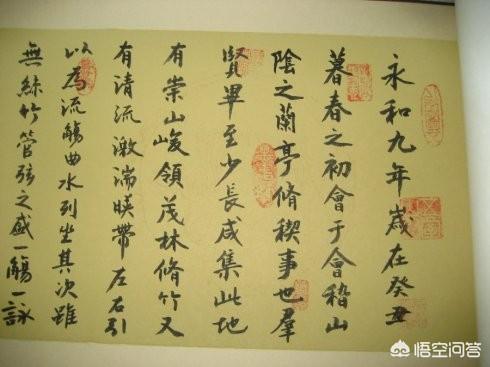 永和九年歲在癸丑
暮春之初會于會稽山
陰之蘭亭脩稧事也羣
賢畢至少長咸集此地
有崇山峻領茂林脩竹又
有清流激湍暎帶左右引
以為流觴曲水列坐其次雖
無絲竹管弦之盛一觴一詠
悟空问答